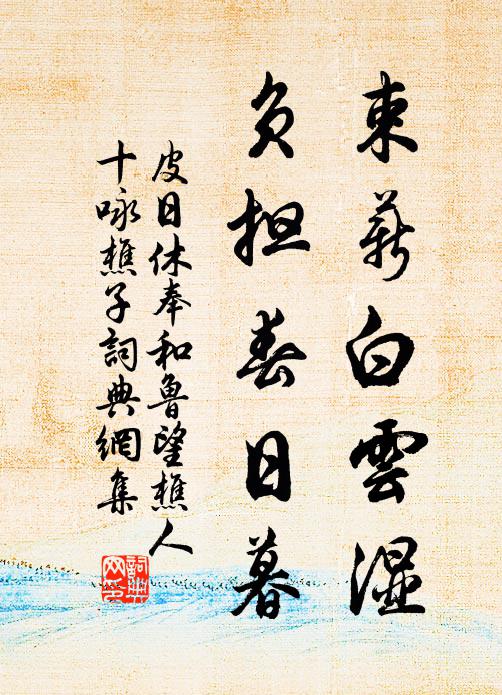 束薪白雲湿
负担春日暮
皮日休奉和鲁望樵人
十咏樵子詞典網集
詞典网集